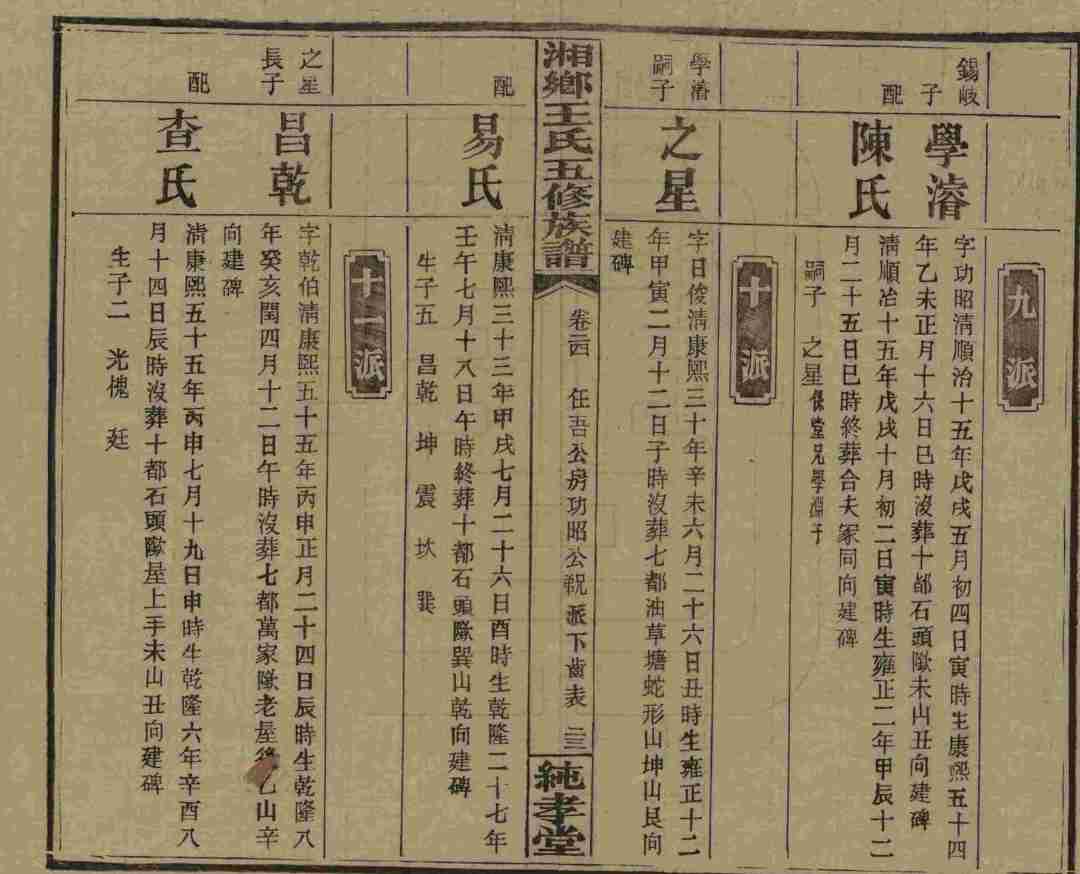 九派
錫岐
子
學濬
字功昭清順治十五年戊戌五月初四日寅時生康熙五十四
年乙未正月十六日巳時沒葬十都石頭歐未山丑向建碑
配
陳氏
清順治十五年戊戌十月初二日寅時生雍正二年甲辰十二
月二十五日巳時終葬合夫冢同向建碑
嗣子 之星係堂兄學淵子
十派
學濬
嗣子
之星
字日俊清康熙三十年辛未六月二十六日丑時生雍正十二
年甲寅二月十二日子時沒葬七都油草塘蛇形山坤山艮向
建碑
湘鄉王氏五修族譜
卷四 任吾公房功昭公派下齒表
純孝堂
配
易氏
清康熙三十三年甲戌七月二十六日酉時生乾隆二十七年
壬午七月十八日午時終葬十都石頭歐巽山乾向建碑
生子五 昌乾 坤 震 坎 巽
十一派
之星
長子
昌乾
字乾伯清康熙五十五年丙申正月二十四日辰時生乾隆八
年癸亥閏四月十二日午時沒葬七都萬家歐老屋後乙山辛
向建碑
配
查氏
清康熙五十五年丙申七月十九日申時生乾隆六年辛酉八
月十四日辰時沒葬十都石頭歐屋上手未山丑向建碑
生子二 光槐 廷